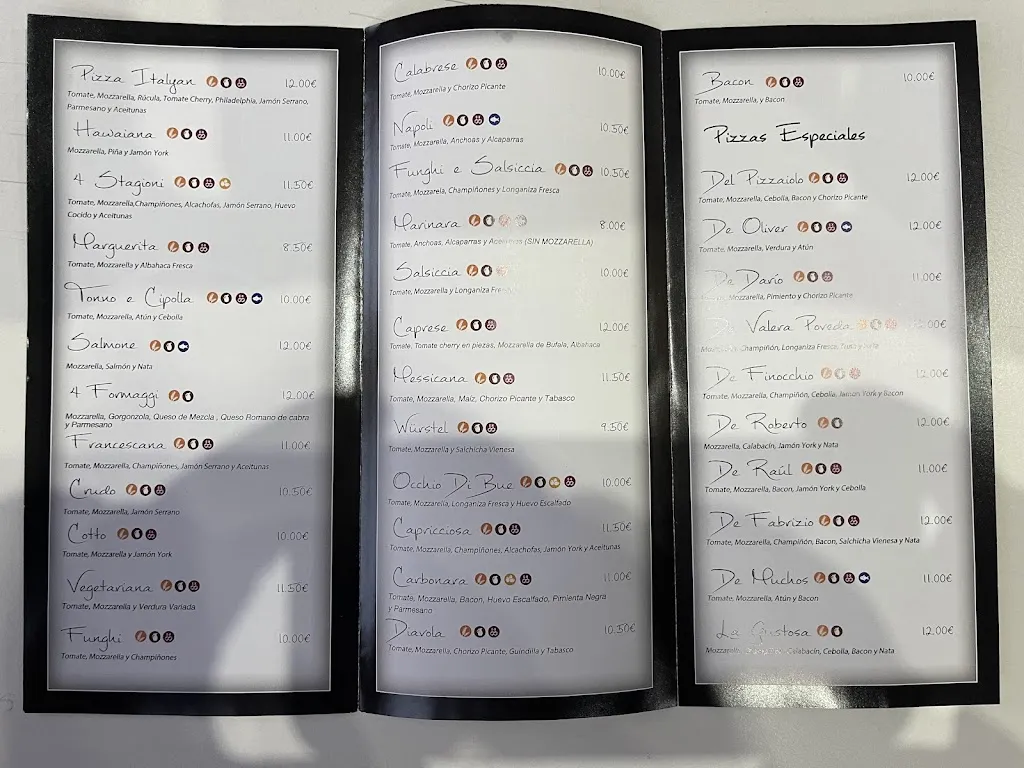 Pizza Italyan 12.00€
Tomate, Mozzarella, Rúcula, Tomate Cherry, Philadelphia, Jamón Serrano,
Parmesano y Aceitunas
Hawaiana 11.00€
Mozzarella, Piña y Jamón York
4 Stagioni 11.50€
Tomate, Mozzarella,Champiñones, Alcachofas, Jamón Serrano, Huevo
Cocido y Aceitunas
Marguerita 8.50€
Tomate, Mozzarella y Albahaca Fresca
Tonno e Cipolla 10.00€
Tomate, Mozzarella, Atún y Cebolla
Salmone 12.00€
Mozzarella, Salmón y Nata
4 Formaggi 12.00€
Mozzarella, Gorgonzola, Queso de Mezcla , Queso Romano de cabra
y Parmesano
Francescana 11.00€
Tomate, Mozzarella, Champiñones, Jamón Serrano y Aceitunas
Crudo 10.50€
Tomate, Mozzarella, Jamón Serrano
Cotto 10.00€
Tomate, Mozzarella y Jamón York
Vegetariana 11.50€
Tomate, Mozzarella y Verdura Variada
Funghi 10.00€
Tomate, Mozzarella y Champiñones
Calabrese 10.00€
Tomate, Mozzarella y Chorizo Picante
Napoli 10.50€
Tomate, Mozzarella, Anchoas y Alcaparras
Funghi e Salsiccia 10.50€
Tomate, Mozzarela, Champiñones y Longaniza Fresca
Marinara 8.00€
Tomate, Anchoas, Alcaparras y Aceitunas (SIN MOZZARELLA)
Salsiccia 10.00€
Tomate, Mozzarella y Longaniza Fresca
Caprese 12.00€
Tomate, Tomate cherry en piezas, Mozzarella de Bufala, Albahaca
Messicana 11.50€
Tomate, Mozzarella, Maíz, Chorizo Picante y Tabasco
Würstel 9.50€
Tomate, Mozzarella y Salchicha Vienesa
Occhio Di Bue 10.00€
Tomate, Mozzarella, Longaniza Fresca y Huevo Escalfado
Capricciosa 11.50€
Tomate, Mozzarella, Champiñones, Alcachofas, Jamón York y Aceitunas
Carbonara 11.00€
Tomate, Mozzarella, Bacon, Huevo Escalfado, Pimienta Negra
y Parmesano
Diavola 10.50€
Tomate, Mozzarella, Chorizo Picante, Guindilla y Tabasco
Bacon 10.00€
Tomate, Mozzarella, y Bacon
Pizzas Especiales
Del Pizzaiolo 12.00€
Tomate, Mozzarella, Cebolla, Bacon y Chorizo Picante
De Oliver 12.00€
Tomate, Mozzarella, Verdura y Atún
De Darío 11.00€
Tomate, Mozzarella, Pimiento y Chorizo Picante
De Valera Poveda
Champiñón, Longaniza Fresca, y Nata
De Finocchio 12.00€
Tomate, Mozzarella, Champiñón, Cebolla, Jamón York y Bacon
De Roberto 12.00€
Mozzarella, Calabacín, Jamón York y Nata
De Raúl 11.00€
Tomate, Mozzarella, Bacon, Jamón York y Cebolla
De Fabrizio 12.00€
Tomate, Mozzarella, Champiñón, Bacon, Salchicha Vienesa y Nata
De Muchos 11.00€
Tomate, Mozzarella, Atún y Bacon
La Gustosa 12.00€
Mozzarella, Calabacín, Cebolla, Bacon y Nata